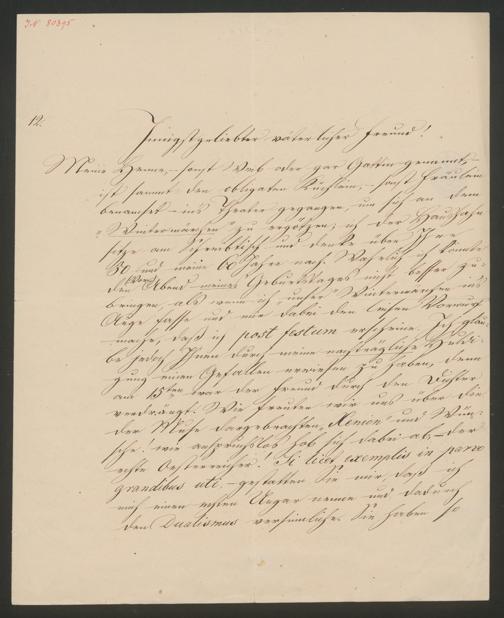 I.N. 80895
12.
Innigstgeliebter väterlicher Freund!
Meine Henne, – sonst Weib oder gar Gattin genannt, –
ist sammt den obligaten Küchlein, – sonst Fräulein
benamset – ins Theater gegangen, um sich an dem
"Wintermärchen" zu ergötzen; ich der Haushahn
sitze am Schreibtisch und denke über Ihre
80 und meine 60 Jahre nach. Wahrlich ich könnte
den Abend meines Geburtstages nicht besser zu-
bringen als wenn ich unser Wintermärchen ins
Auge fasse und mir dabei den leisen Vorwurf
mache, daß ich post festum erscheine. Ich glau-
be jedoch Ihnen durch meine nachträgliche Huldi-
gung einen Gefallen erwiesen zu haben, denn
am 15ten war der Freund durch den Dichter
verdrängt. Wie freuten wir uns über die
der Muse dargebrachten Xenien und Wün-
sche! wie anspruchslos hob sich dabei ab – der
echte Oesterreicher! Si licet exemplis in parvo
grandibus uti – gestatten Sie mir, daß ich
mich einen echten Ungar nenne und dadurch
den Dualismus versinnliche. Sie haben so